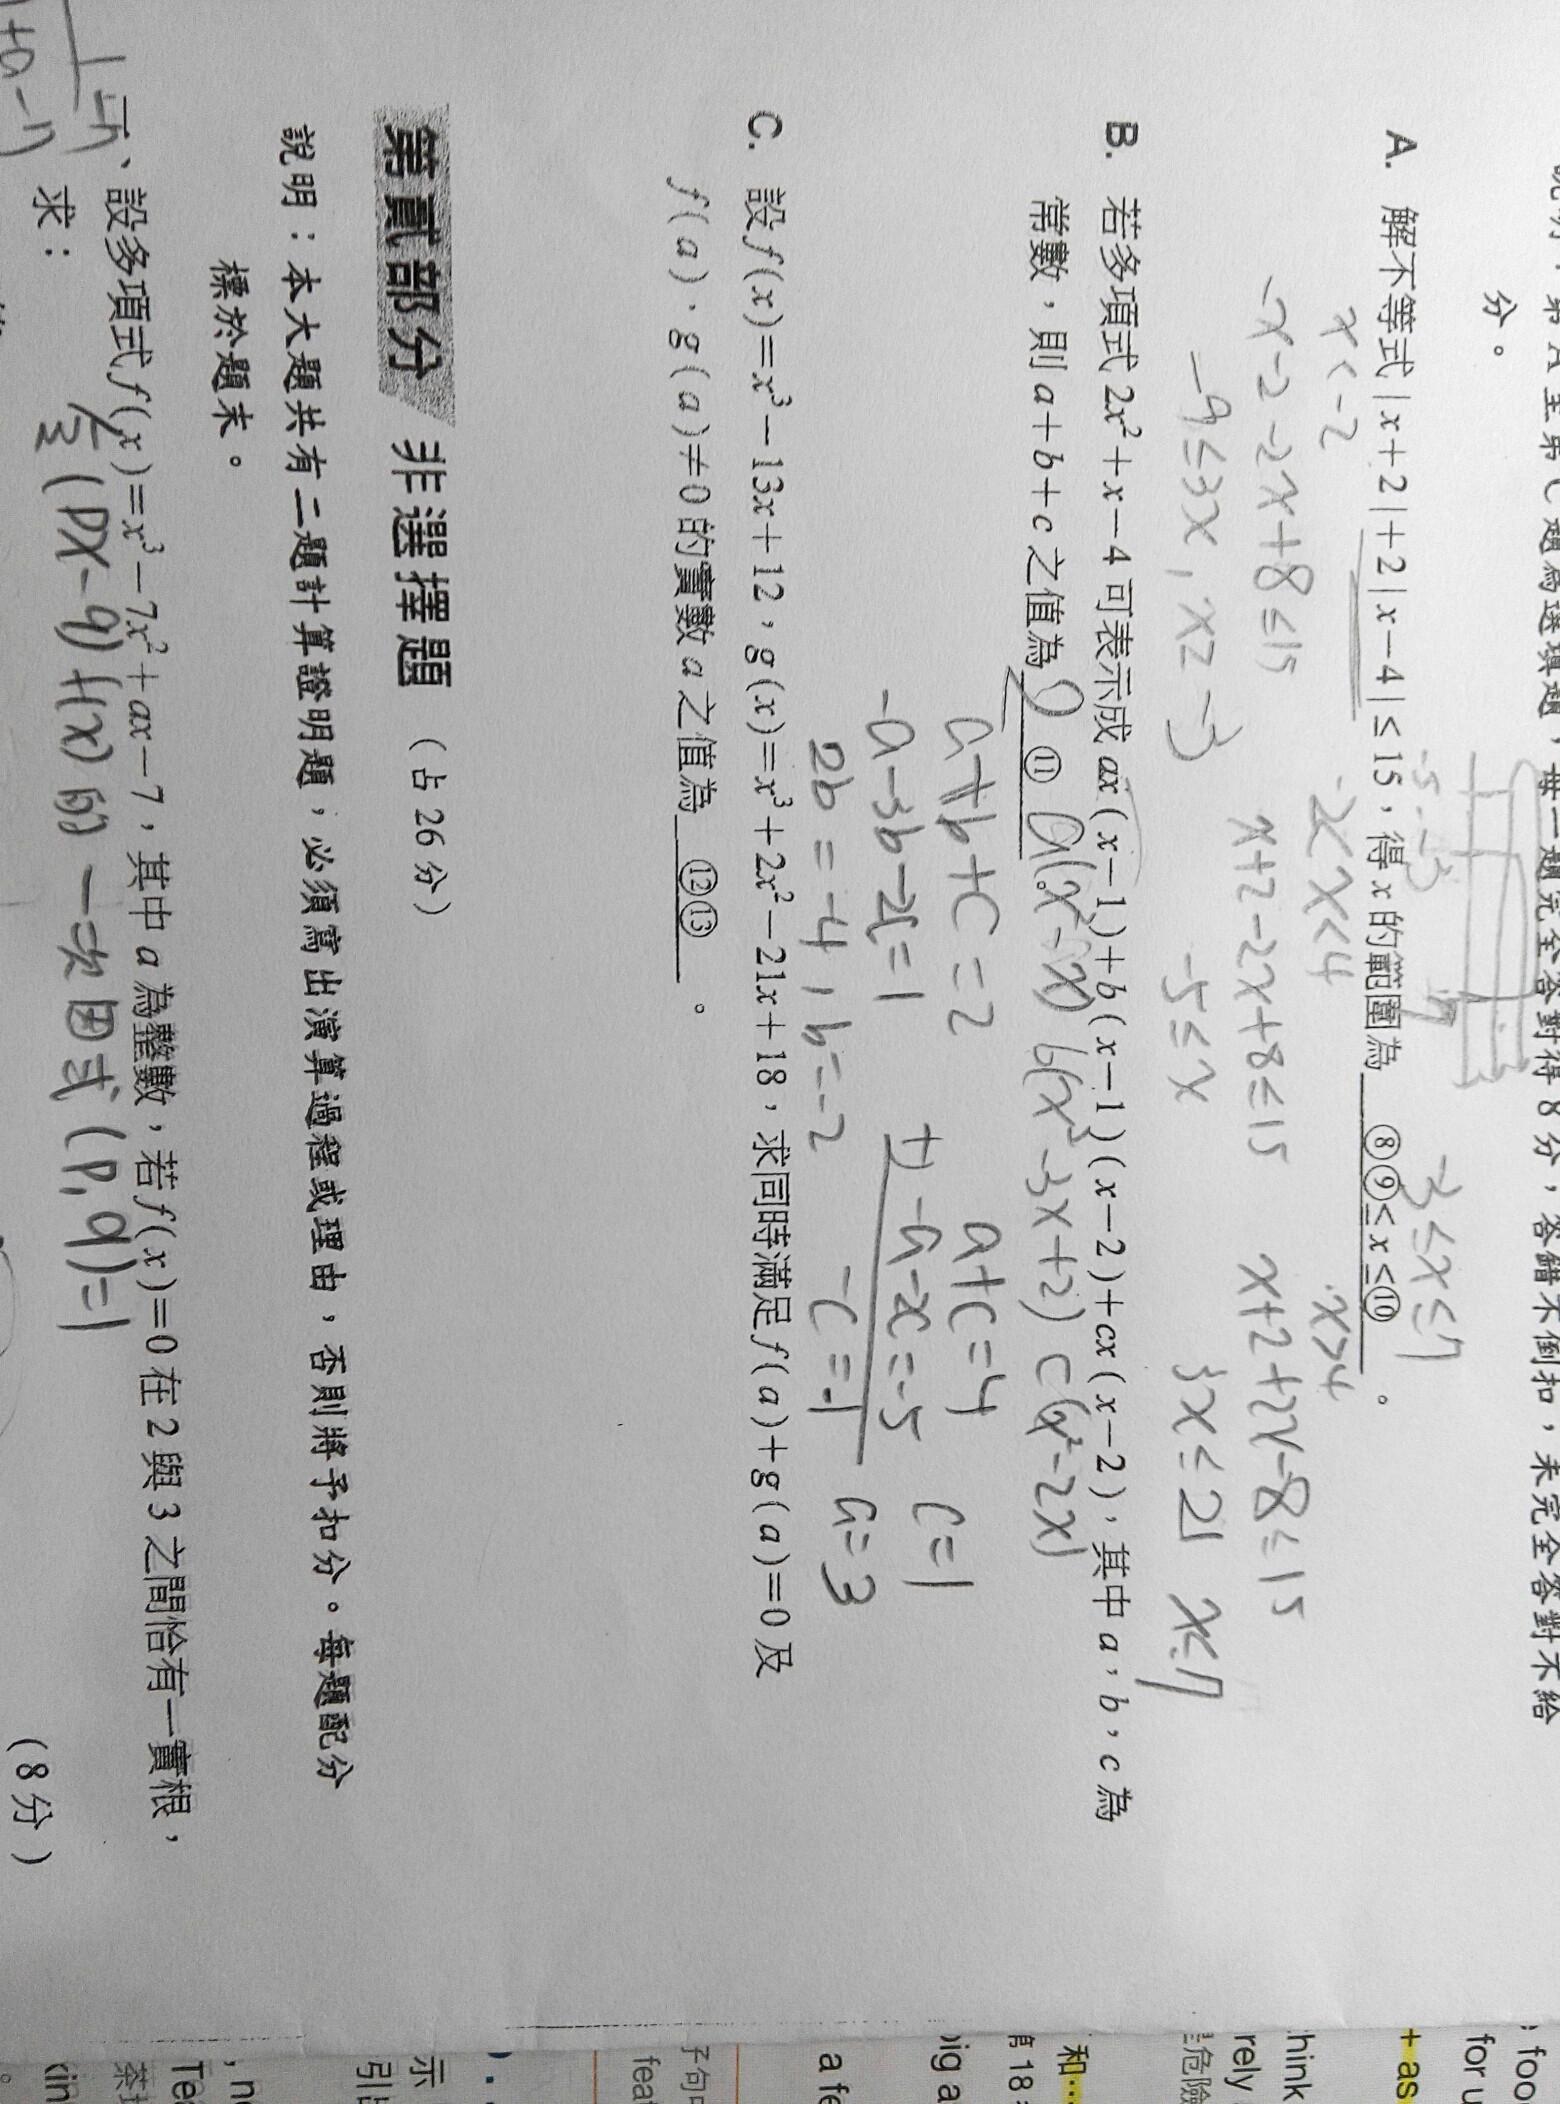 說明：第A至第C題為選填題，每一題完全答對得8分，答錯不倒扣，未完全答對不給
分。
A. 解不等式|x+2|+2|x-4|≤15，得x的範圍為 ⑧⑨≤x≤⑩ 。
-3≤x≤7
-5 -3 7
x<-2
-2<x<4
x>4
-x-2-2x+8≤15
x+2-2x+8≤15
x+2+2x-8≤15
-9≤3x, x≥-3
-5≤x
3x≤21 x≤7
B. 若多項式2x²+x-4可表示成ax(x-1)+b(x-1)(x-2)+cx(x-2)，其中a，b，c為
常數，則a+b+c之值為 ⑪
a(x²-x) b(x²-3x+2) c(x²-2x)
a+b+c=2
-a-3b-2c=1
2b=-4, b=-2
a+c=4
+) -a-2c=-5
-c=-1
c=1
a=3
C. 設f(x)=x³-13x+12，g(x)=x³+2x²-21x+18，求同時滿足f(a)+g(a)=0及
f(a)·g(a)≠0的實數a之值為 ⑫⑬ 。
第貳部分 非選擇題（占26分）
說明：本大題共有二題計算證明題，必須寫出演算過程或理由，否則將予扣分。每題配分
標於題末。
一、設多項式f(x)=x³-7x²+ax-7，其中a為整數，若f(x)=0在2與3之間恰有一實根，
(px-q) f(x)的一次因式 (p, q)=1
求：
(8分)